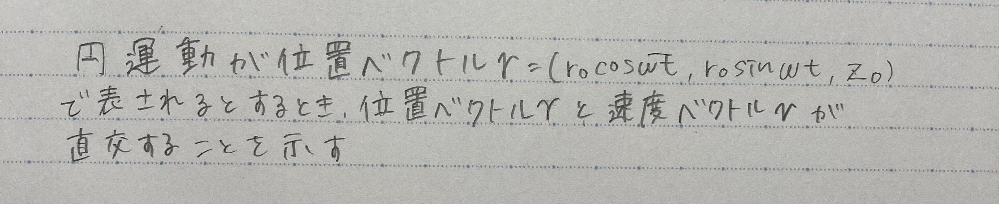 円運動が位置ベクトルr=(r₀cosωt, r₀sinωt, z₀)
で表されるとするとき、位置ベクトルrと速度ベクトルvが
直交することを示す